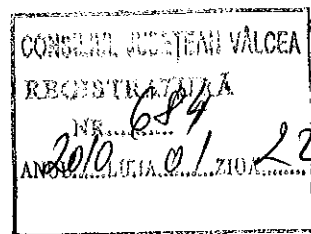 CONSILIUL JUDEȚEAN VÂLCEA
REGISTRATURĂ
NR. 684
ANUL 2010 LUNA 01 ZIUA 22